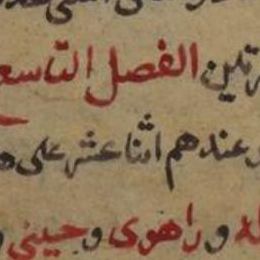 رتين الفصل التاسع
وعندهم اثنا عشر على
له و راهوى و حينى و